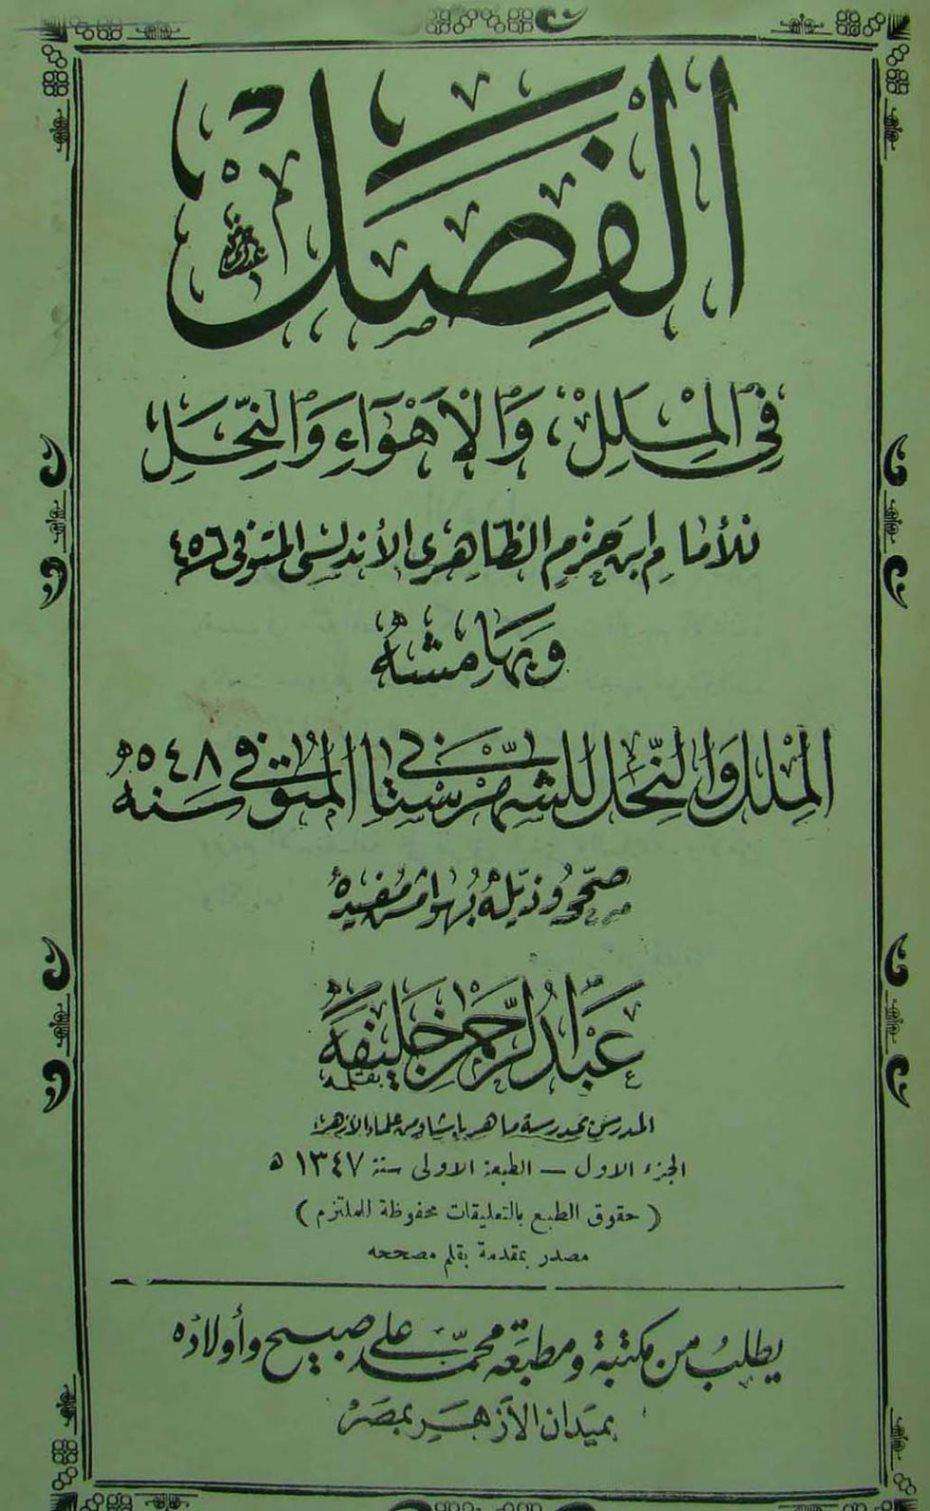 الفِصَل
في المِلَلِ، وَالأَهْوَآءِ وَالنِّحَلِ
للأمامِ ابن حزمٍ الظّاهِرى الأندلسى المتوفى ٤٥٦
وَبهامشهُ
المِلل وَالنِّحَل للشهرستانى المُتوَفى سَنه ٥٤٨ ه
صحّحهُ وذيّلهُ بهوامش مُفيدهْ
عَبْدُ الرَّحمن خَليفَه
المدرس بمدرسة ماهر باشا ومن علماء الازهر
الجزء الاول — الطبعة الاولى سنة ١٣٤٧ ه
( حقوق الطبع بالتعليقات محفوظة للملتزم )
مصدر بمقدمة بقلم مصححه
يطلبُ من مكتبة ومطبعَة محمّد على صبيح وأولادُه
بميَدان الأزهَرِ بمصَرْ